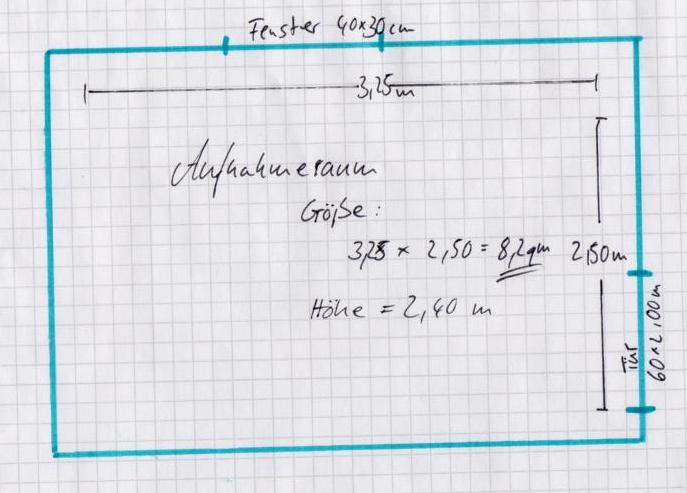 Fenster 40x30cm
3,25m
Aufnahmeraum
Größe:
3,25 x 2,50 = 8,2qm
2,50m
Höhe = 2,40 m
Tür
60x2,00m